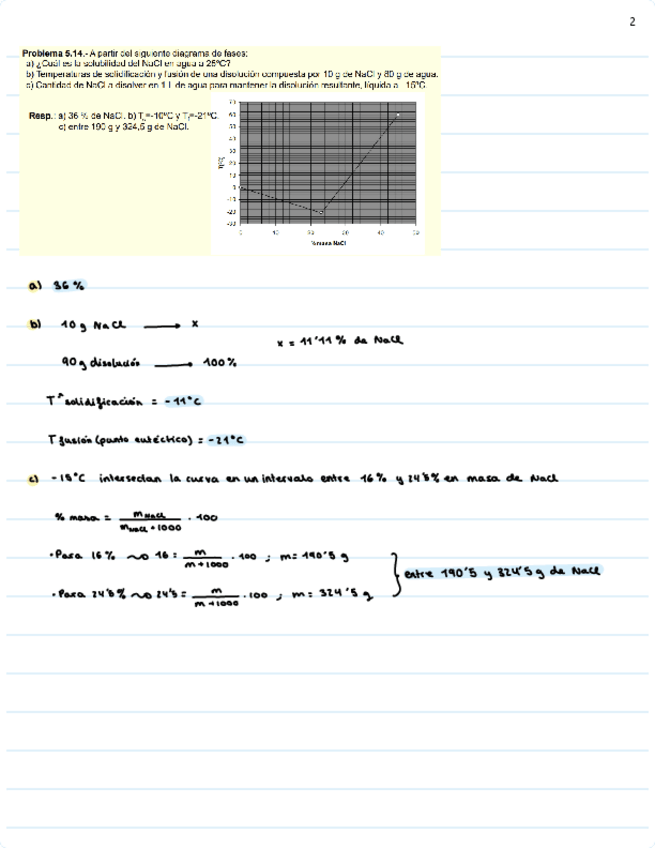 2
Problema 5.14.- A partir del siguiente diagrama de fases:
a) ¿Cuál es la solubilidad del NaCl en agua a 25ºC?
b) Temperaturas de solidificación y fusión de una disolución compuesta por 10 g de NaCl y 80 g de agua.
c) Cantidad de NaCl a disolver en 1 L de agua para mantener la disolución resultante, líquida a -15ºC.
Resp.: a) 36 % de NaCl. b) T =-10ºC y T =-21ºC.
c) entre 190 g y 324,5 g de NaCl.
70
60
50
40
30
20
10
0
-10
-20
-30
T(ºC)
0 10 20 30 40 50
% masa NaCl
a) 36 %
b) 10 g NaCl → x
x = 11'11 % de NaCl
90 g disolución → 100 %
Tª solidificación = -11°C
T fusión (punto eutéctico) = -21°C
c) -15°C intersectan la curva en un intervalo entre 16 % y 24'5 % en masa de NaCl
% masa = m NaCl / m NaCl + 1000 · 100
· Para 16 % ~> 16 = m / m + 1000 · 100 ; m = 190'5 g
entre 190'5 y 324'5 g de NaCl
· Para 24'5 % ~> 24'5 = m / m + 1000 · 100 ; m = 324'5 g